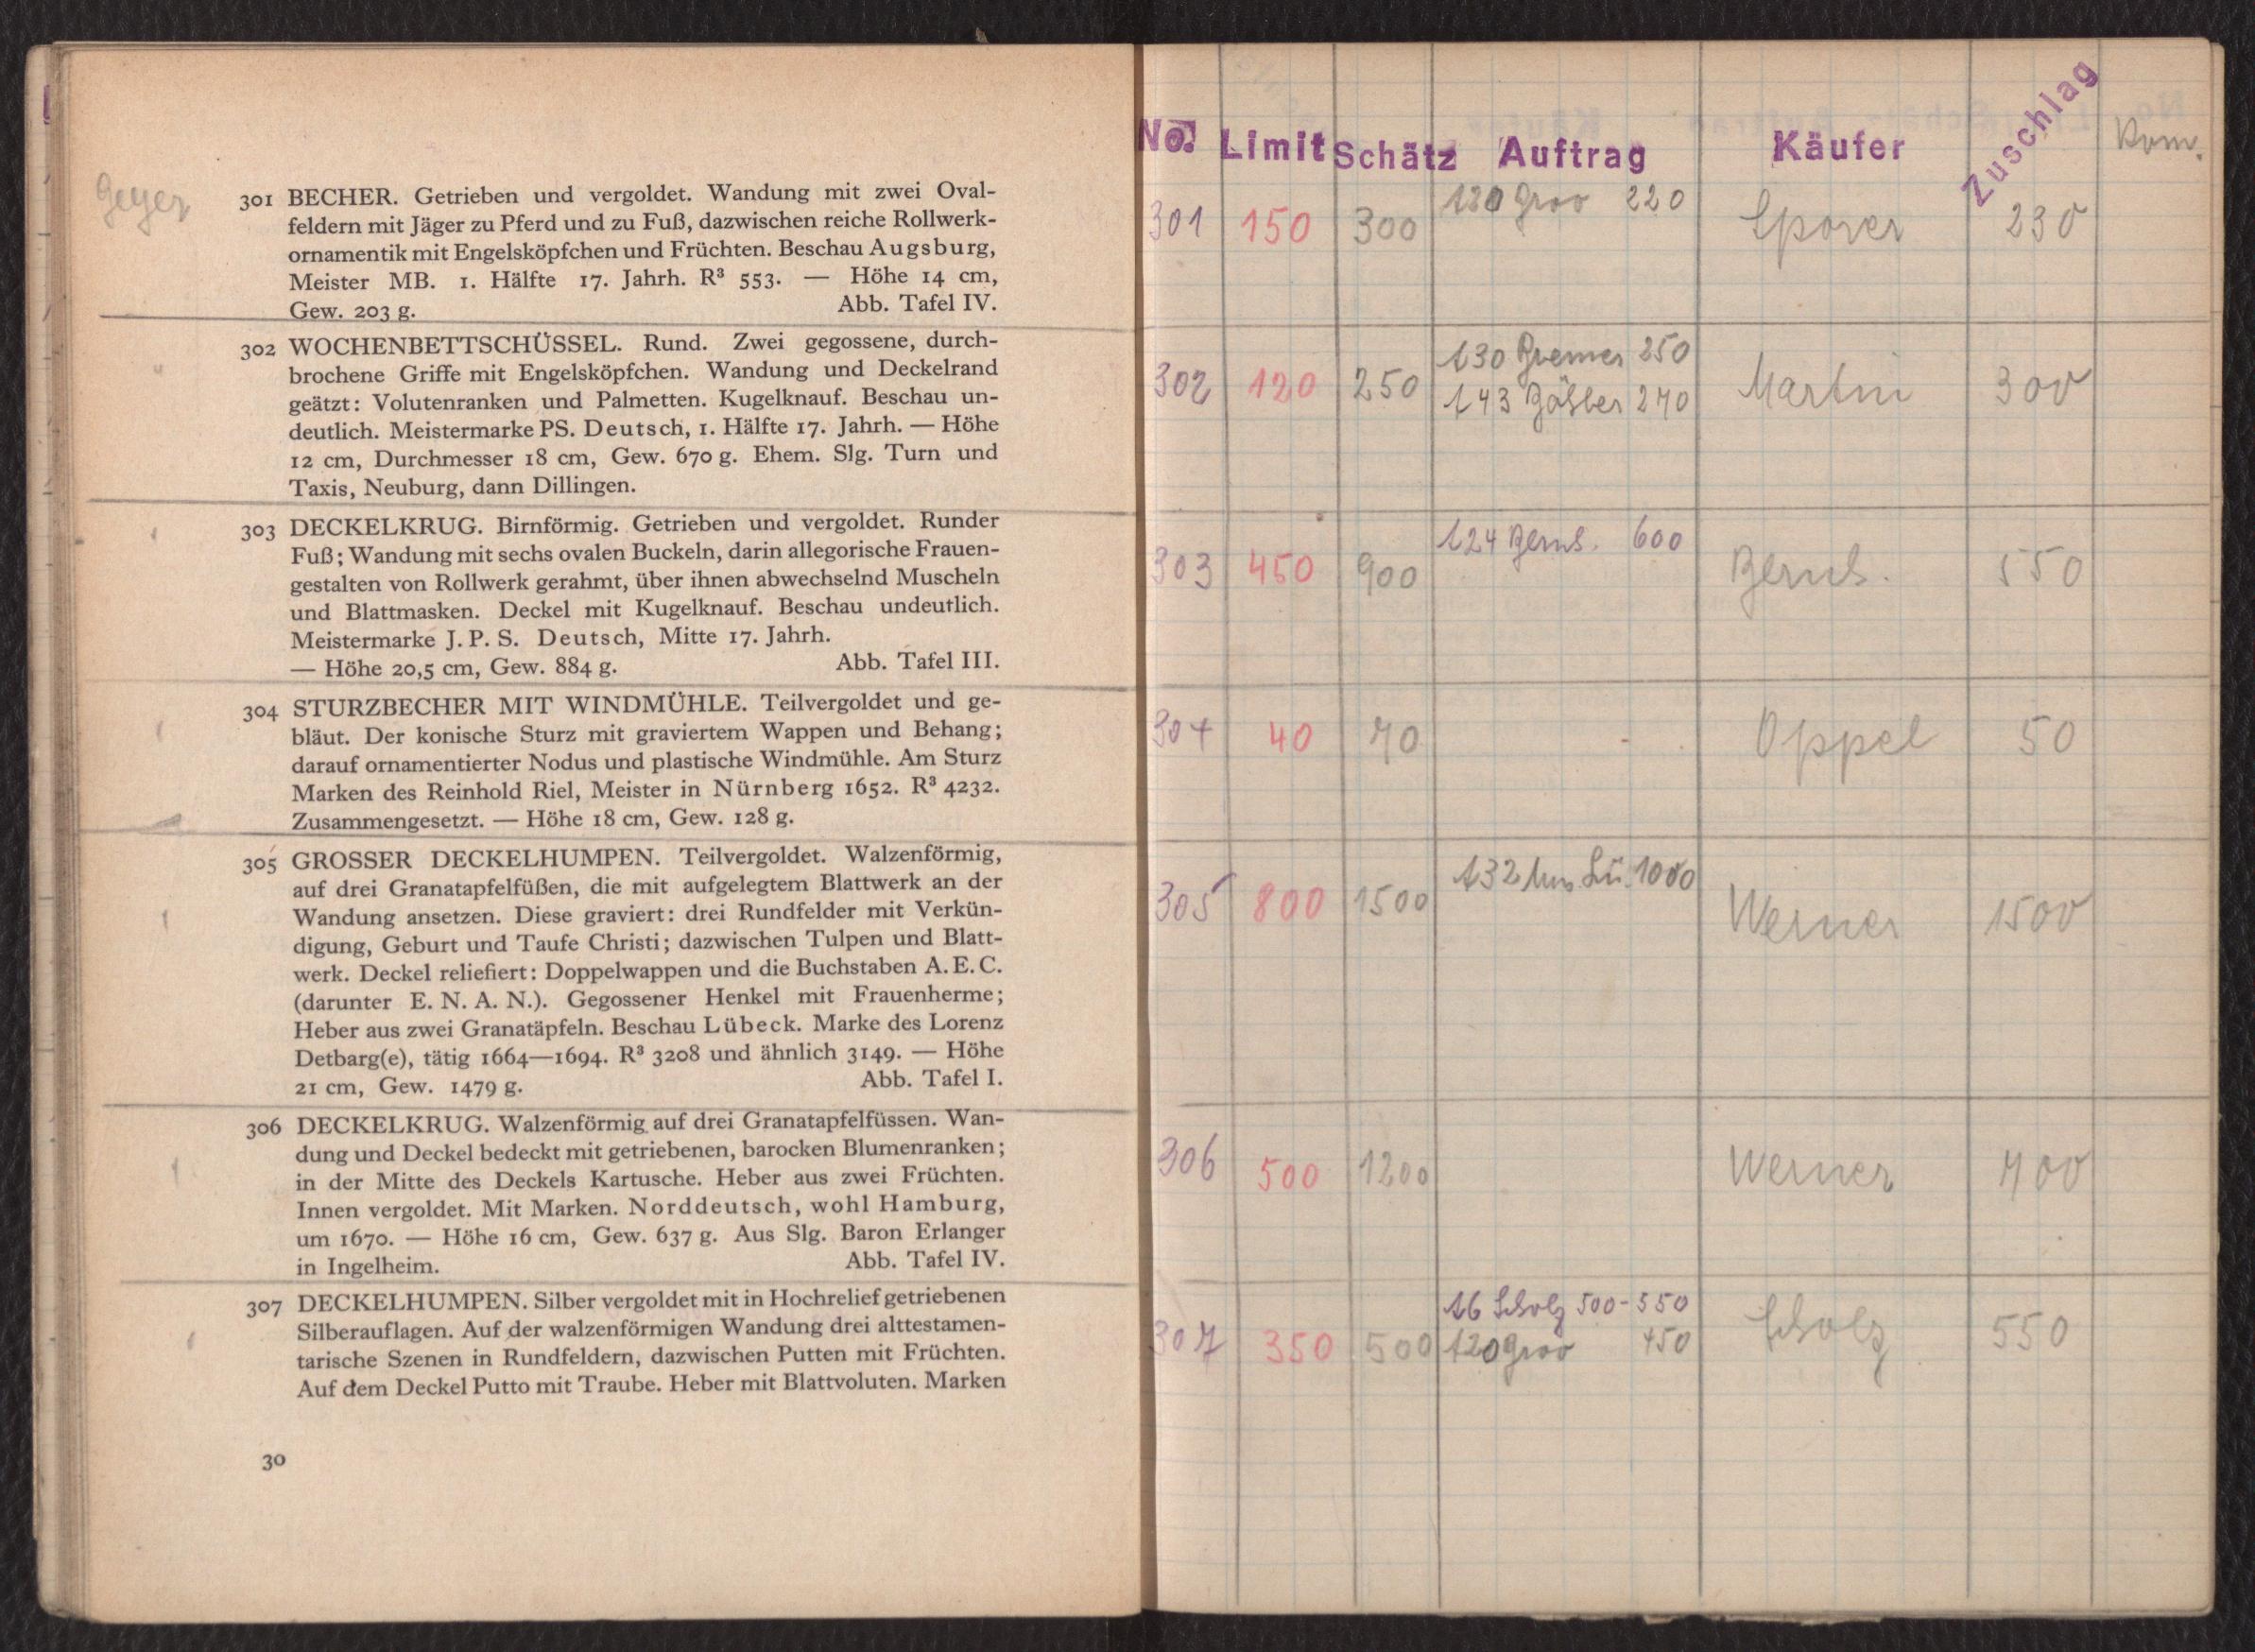 Geyer
301 BECHER. Getrieben und vergoldet. Wandung mit zwei Oval-
feldern mit Jäger zu Pferd und zu Fuß, dazwischen reiche Rollwerk-
ornamentik mit Engelsköpfchen und Früchten. Beschau Augsburg,
Meister MB. 1. Hälfte 17. Jahrh. R³ 553. — Höhe 14 cm,
Gew. 203 g. Abb. Tafel IV.
302 WOCHENBETTSCHÜSSEL. Rund. Zwei gegossene, durch-
brochene Griffe mit Engelsköpfchen. Wandung und Deckelrand
geätzt: Volutenranken und Palmetten. Kugelknauf. Beschau un-
deutlich. Meistermarke PS. Deutsch, 1. Hälfte 17. Jahrh. — Höhe
12 cm, Durchmesser 18 cm, Gew. 670 g. Ehem. Slg. Turn und
Taxis, Neuburg, dann Dillingen.
303 DECKELKRUG. Birnförmig. Getrieben und vergoldet. Runder
Fuß; Wandung mit sechs ovalen Buckeln, darin allegorische Frauen-
gestalten von Rollwerk gerahmt, über ihnen abwechselnd Muscheln
und Blattmasken. Deckel mit Kugelknauf. Beschau undeutlich.
Meistermarke J. P. S. Deutsch, Mitte 17. Jahrh.
— Höhe 20,5 cm, Gew. 884 g. Abb. Tafel III.
304 STURZBECHER MIT WINDMÜHLE. Teilvergoldet und ge-
bläut. Der konische Sturz mit graviertem Wappen und Behang;
darauf ornamentierter Nodus und plastische Windmühle. Am Sturz
Marken des Reinhold Riel, Meister in Nürnberg 1652. R³ 4232.
Zusammengesetzt. — Höhe 18 cm, Gew. 128 g.
305 GROSSER DECKELHUMPEN. Teilvergoldet. Walzenförmig,
auf drei Granatapfelfüßen, die mit aufgelegtem Blattwerk an der
Wandung ansetzen. Diese graviert: drei Rundfelder mit Verkün-
digung, Geburt und Taufe Christi; dazwischen Tulpen und Blatt-
werk. Deckel reliefiert: Doppelwappen und die Buchstaben A. E. C.
(darunter E. N. A. N.). Gegossener Henkel mit Frauenherme;
Heber aus zwei Granatäpfeln. Beschau Lübeck. Marke des Lorenz
Detbarg(e), tätig 1664—1694. R³ 3208 und ähnlich 3149. — Höhe
21 cm, Gew. 1479 g. Abb. Tafel I.
306 DECKELKRUG. Walzenförmig auf drei Granatapfelfüssen. Wan-
dung und Deckel bedeckt mit getriebenen, barocken Blumenranken;
in der Mitte des Deckels Kartusche. Heber aus zwei Früchten.
Innen vergoldet. Mit Marken. Norddeutsch, wohl Hamburg,
um 1670. — Höhe 16 cm, Gew. 637 g. Aus Slg. Baron Erlanger
in Ingelheim. Abb. Tafel IV.
307 DECKELHUMPEN. Silber vergoldet mit in Hochrelief getriebenen
Silberauflagen. Auf der walzenförmigen Wandung drei alttestamen-
tarische Szenen in Rundfeldern, dazwischen Putten mit Früchten.
Auf dem Deckel Putto mit Traube. Heber mit Blattvoluten. Marken
30
No. Limit Schätz Auftrag Käufer Zuschlag Kom.
120 Groo 220
301 150 300 Sporer 230
130 Bremer 250
302 120 250 143 270 Martin 300
124 Bernh. 600
303 450 900 Bernh. 550
304 40 70 - Oppel 50
132 Lü. 1000
305 800 1500 Werner 1500
306 500 1200 Werner 700
16 Scholz 500-550
307 350 500 120 Groo 450 Scholz 550